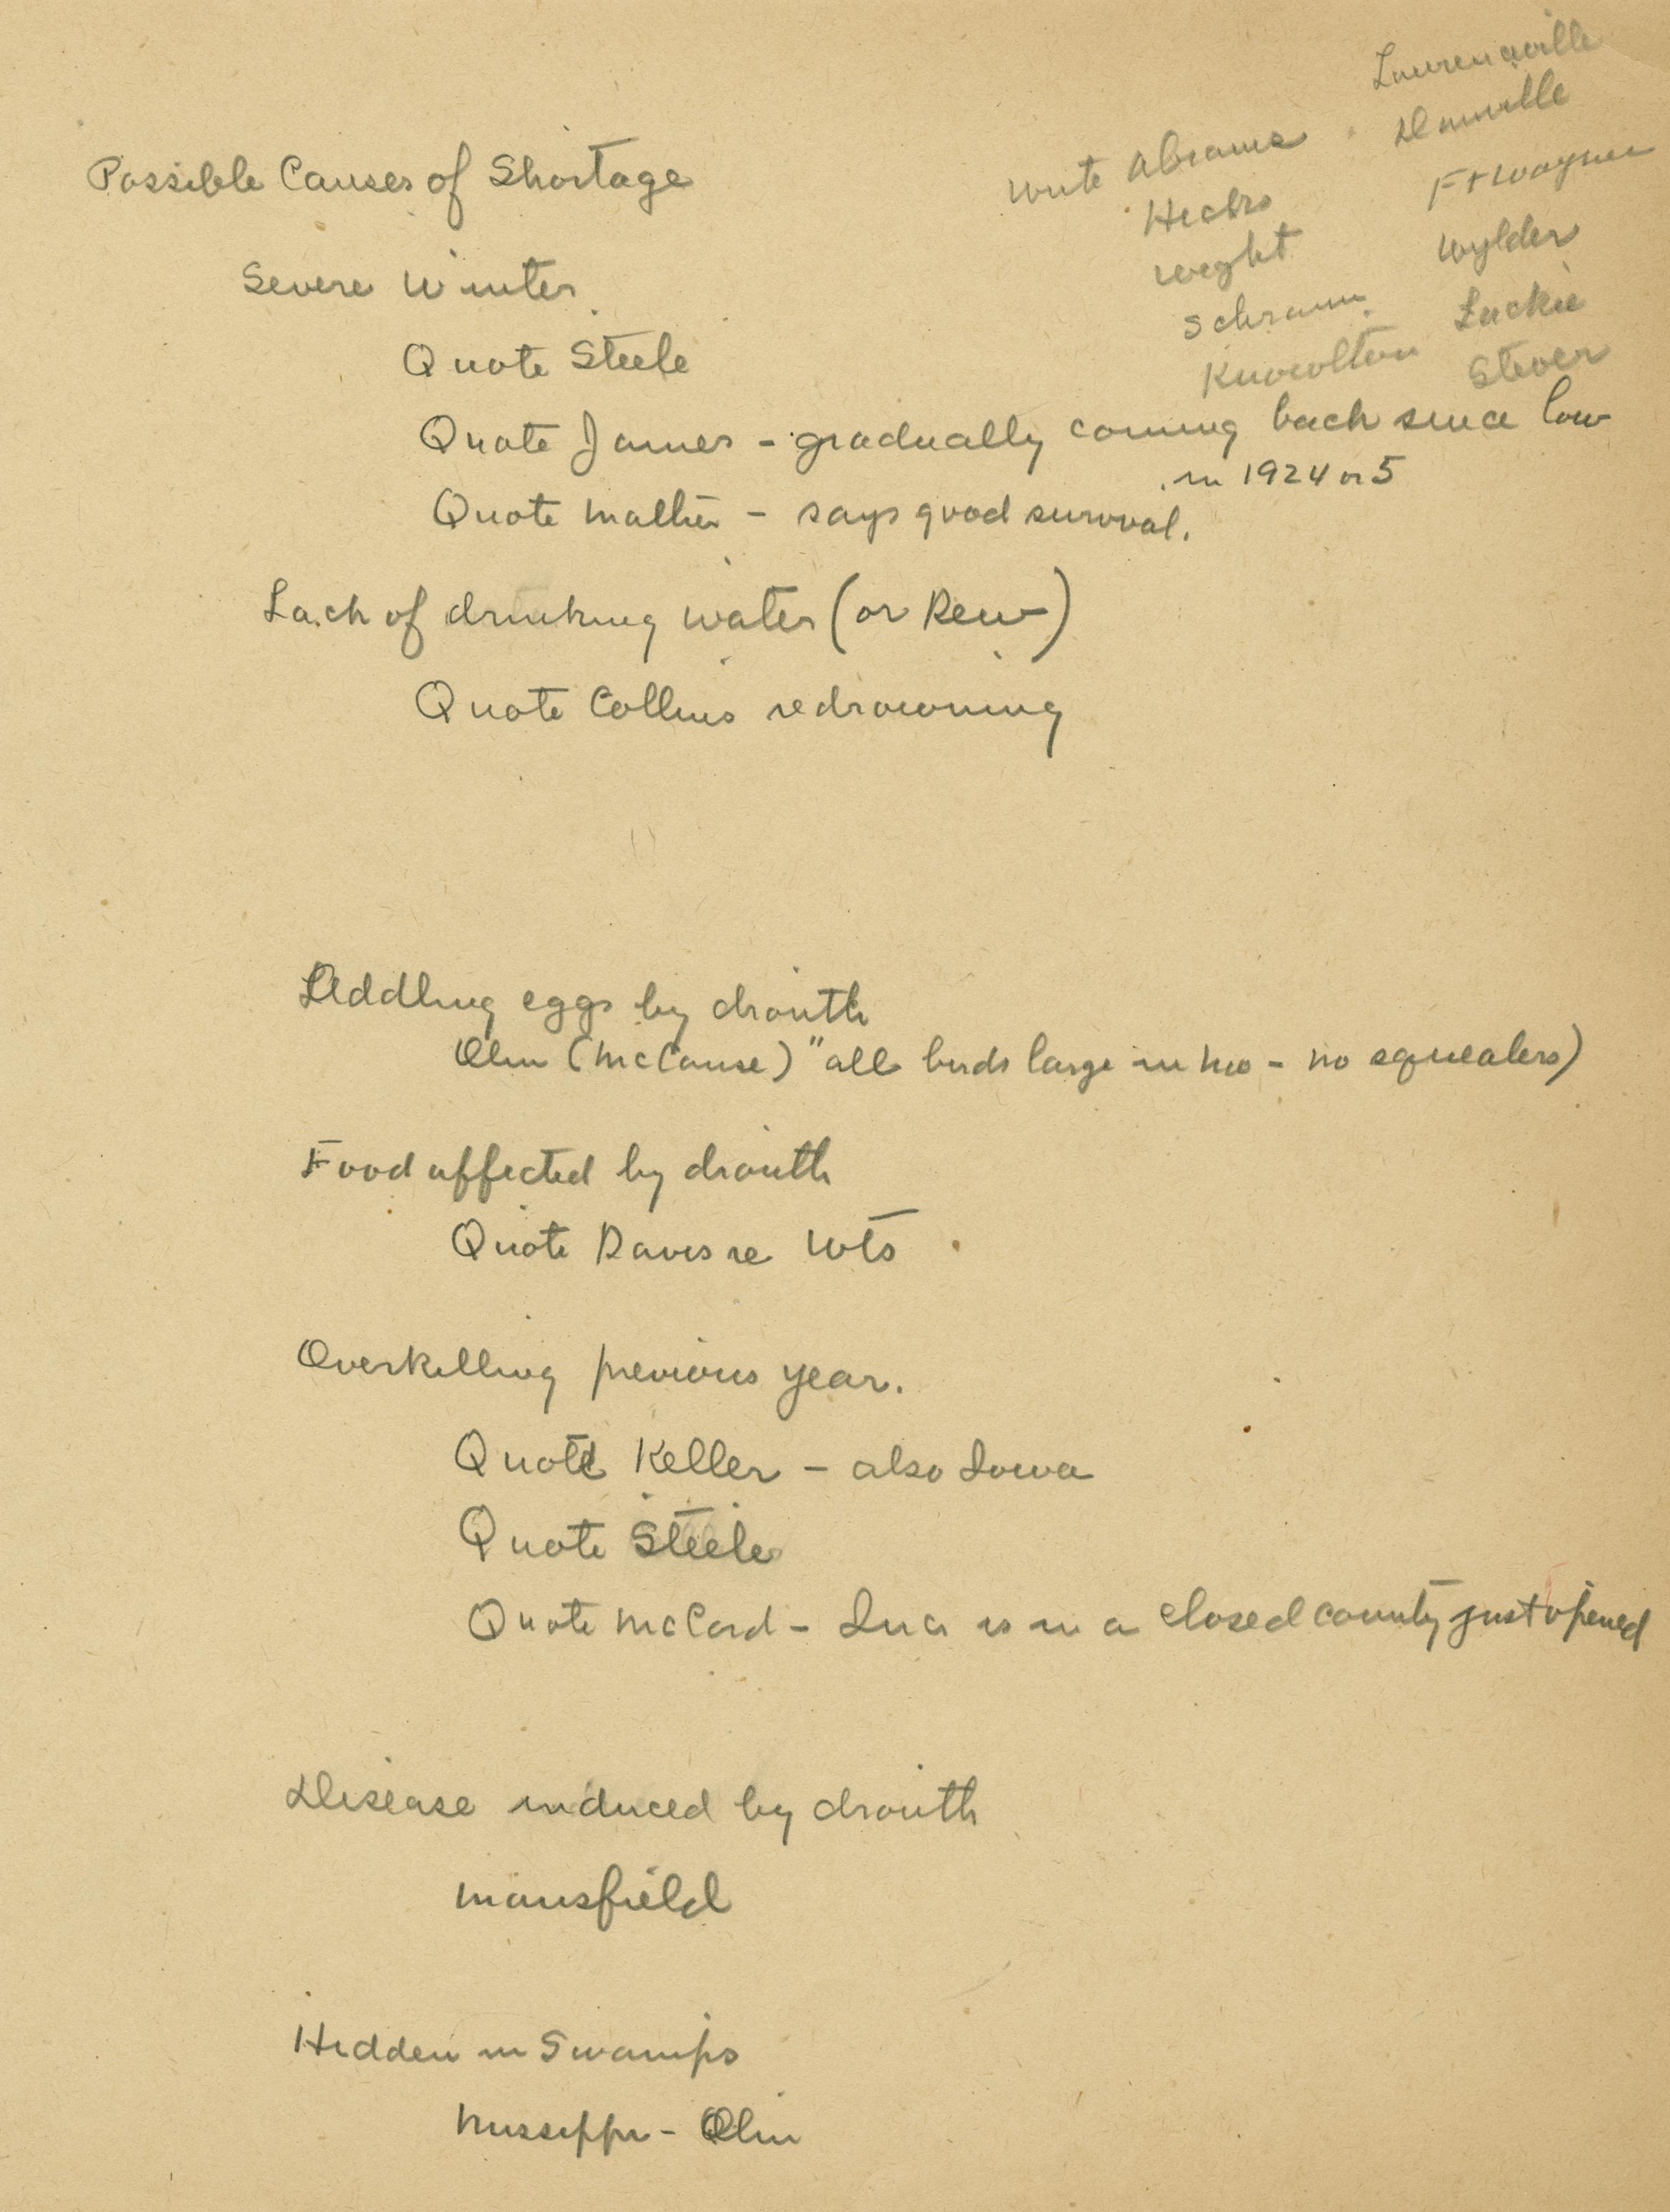 Lawrenceville
Danville
Write Abrams
Ft Wayne
Hicks
Wylder
Wight
Luckie
Schramm
Stever
Knowlton
Possible Causes of Shortage
Severe Winter
Quote Steele
Quote James - gradually coming back since low
in 1924 or 5
Quote - says good survival.
Lack of drinking water (or Dew)
Quote Collins re drowning
Addling eggs by drouth
Olin (McCanse) "all birds large in Mo - no squealers)
Food affected by drouth
Quote Davis re Wts
Overkilling previous year.
Quote Keller - also Iowa
Quote Steele
Quote McCord - is in a closed county just opened
Disease induced by drouth
Mansfield
Hidden in Swamps
Mississippi - Olin